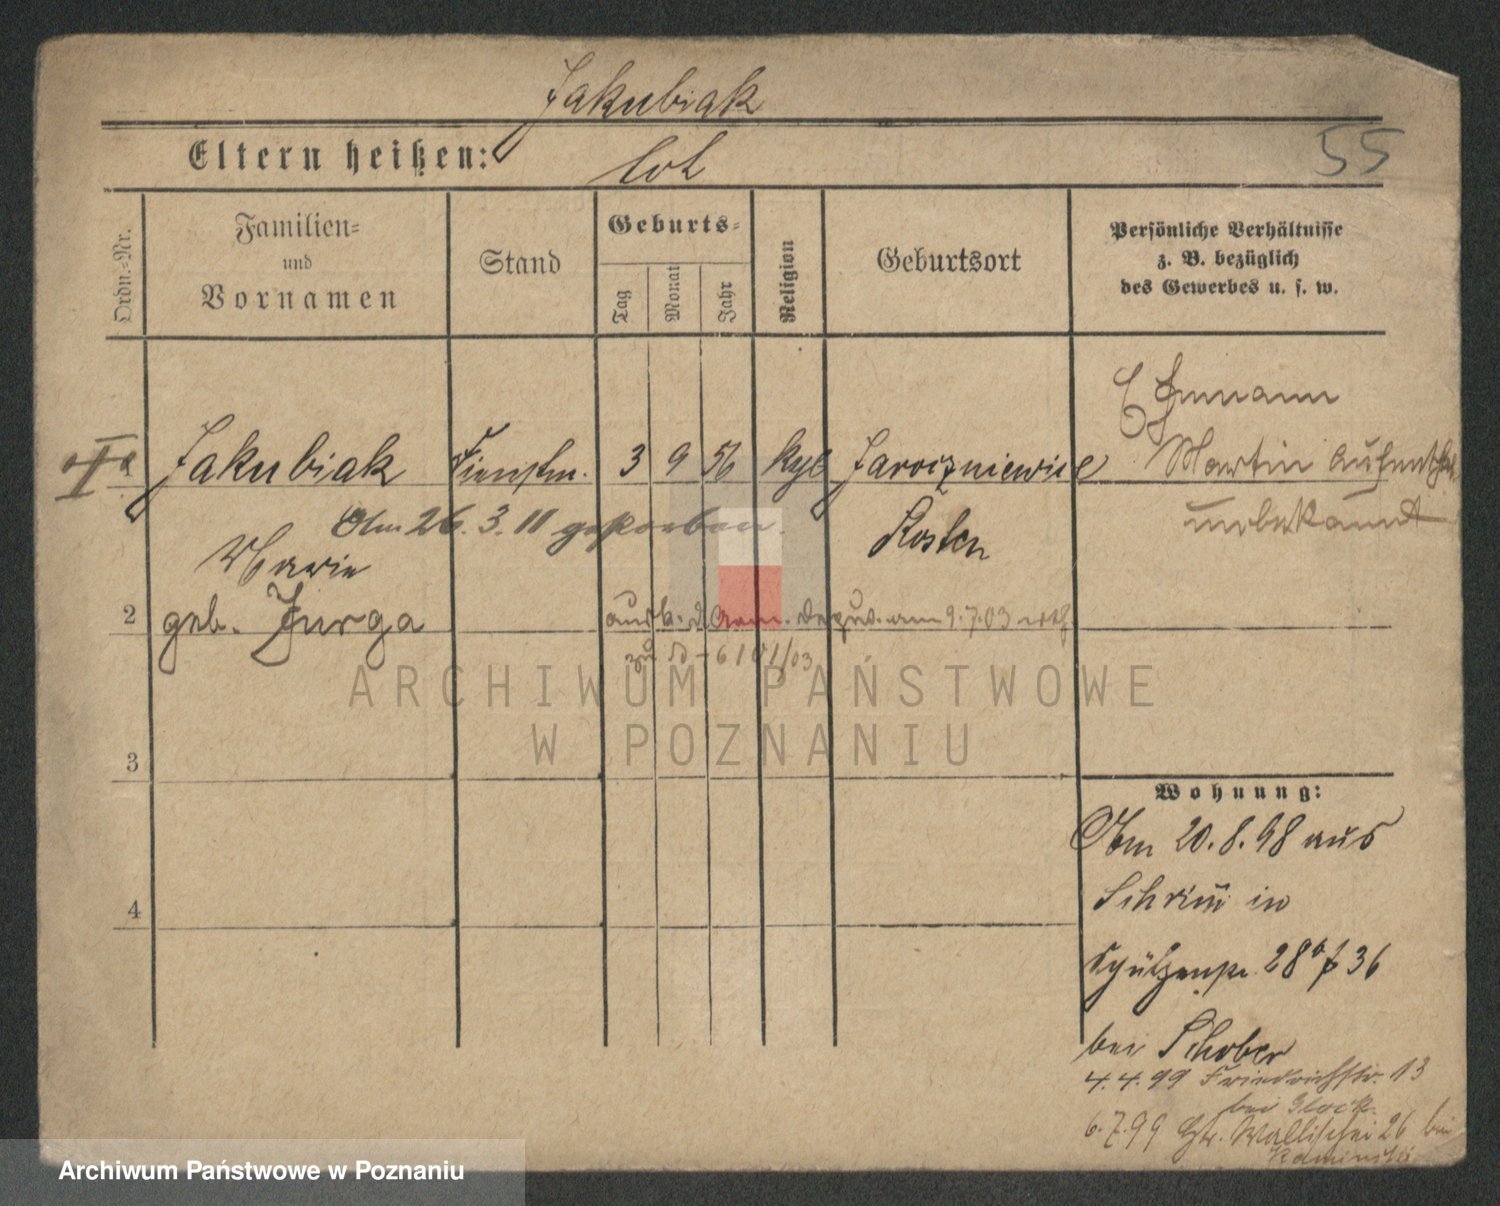 Jakubiak
Eltern heißen: tot
55
Ordn.-Nr.
Familien-
und
Vornamen
Stand
Geburts-
Tag
Monat
Jahr
Religion
Geburtsort
Persönliche Verhältnisse
z. B. bezüglich
des Gewerbes u. s. w.
Jakubiak
3 9 56
Ehemann
Martin Aufenthalt
unbekannt
Am 26. 3. 11 gestorben.
Kosten
Marie
2
geb. Jurga
am 9.7.03
ARCHIWUM PAŃSTWOWE
W POZNANIU
3
Wohnung:
Am 20. 8. 98 aus
Schrimm in
4
Schützenstr. 28
36
bei Schober
4.4.99 Friedrichstr. 13
bei Glock.
6.7.99 Gr. Wallischei 26 bei
Archiwum Państwowe w Poznaniu